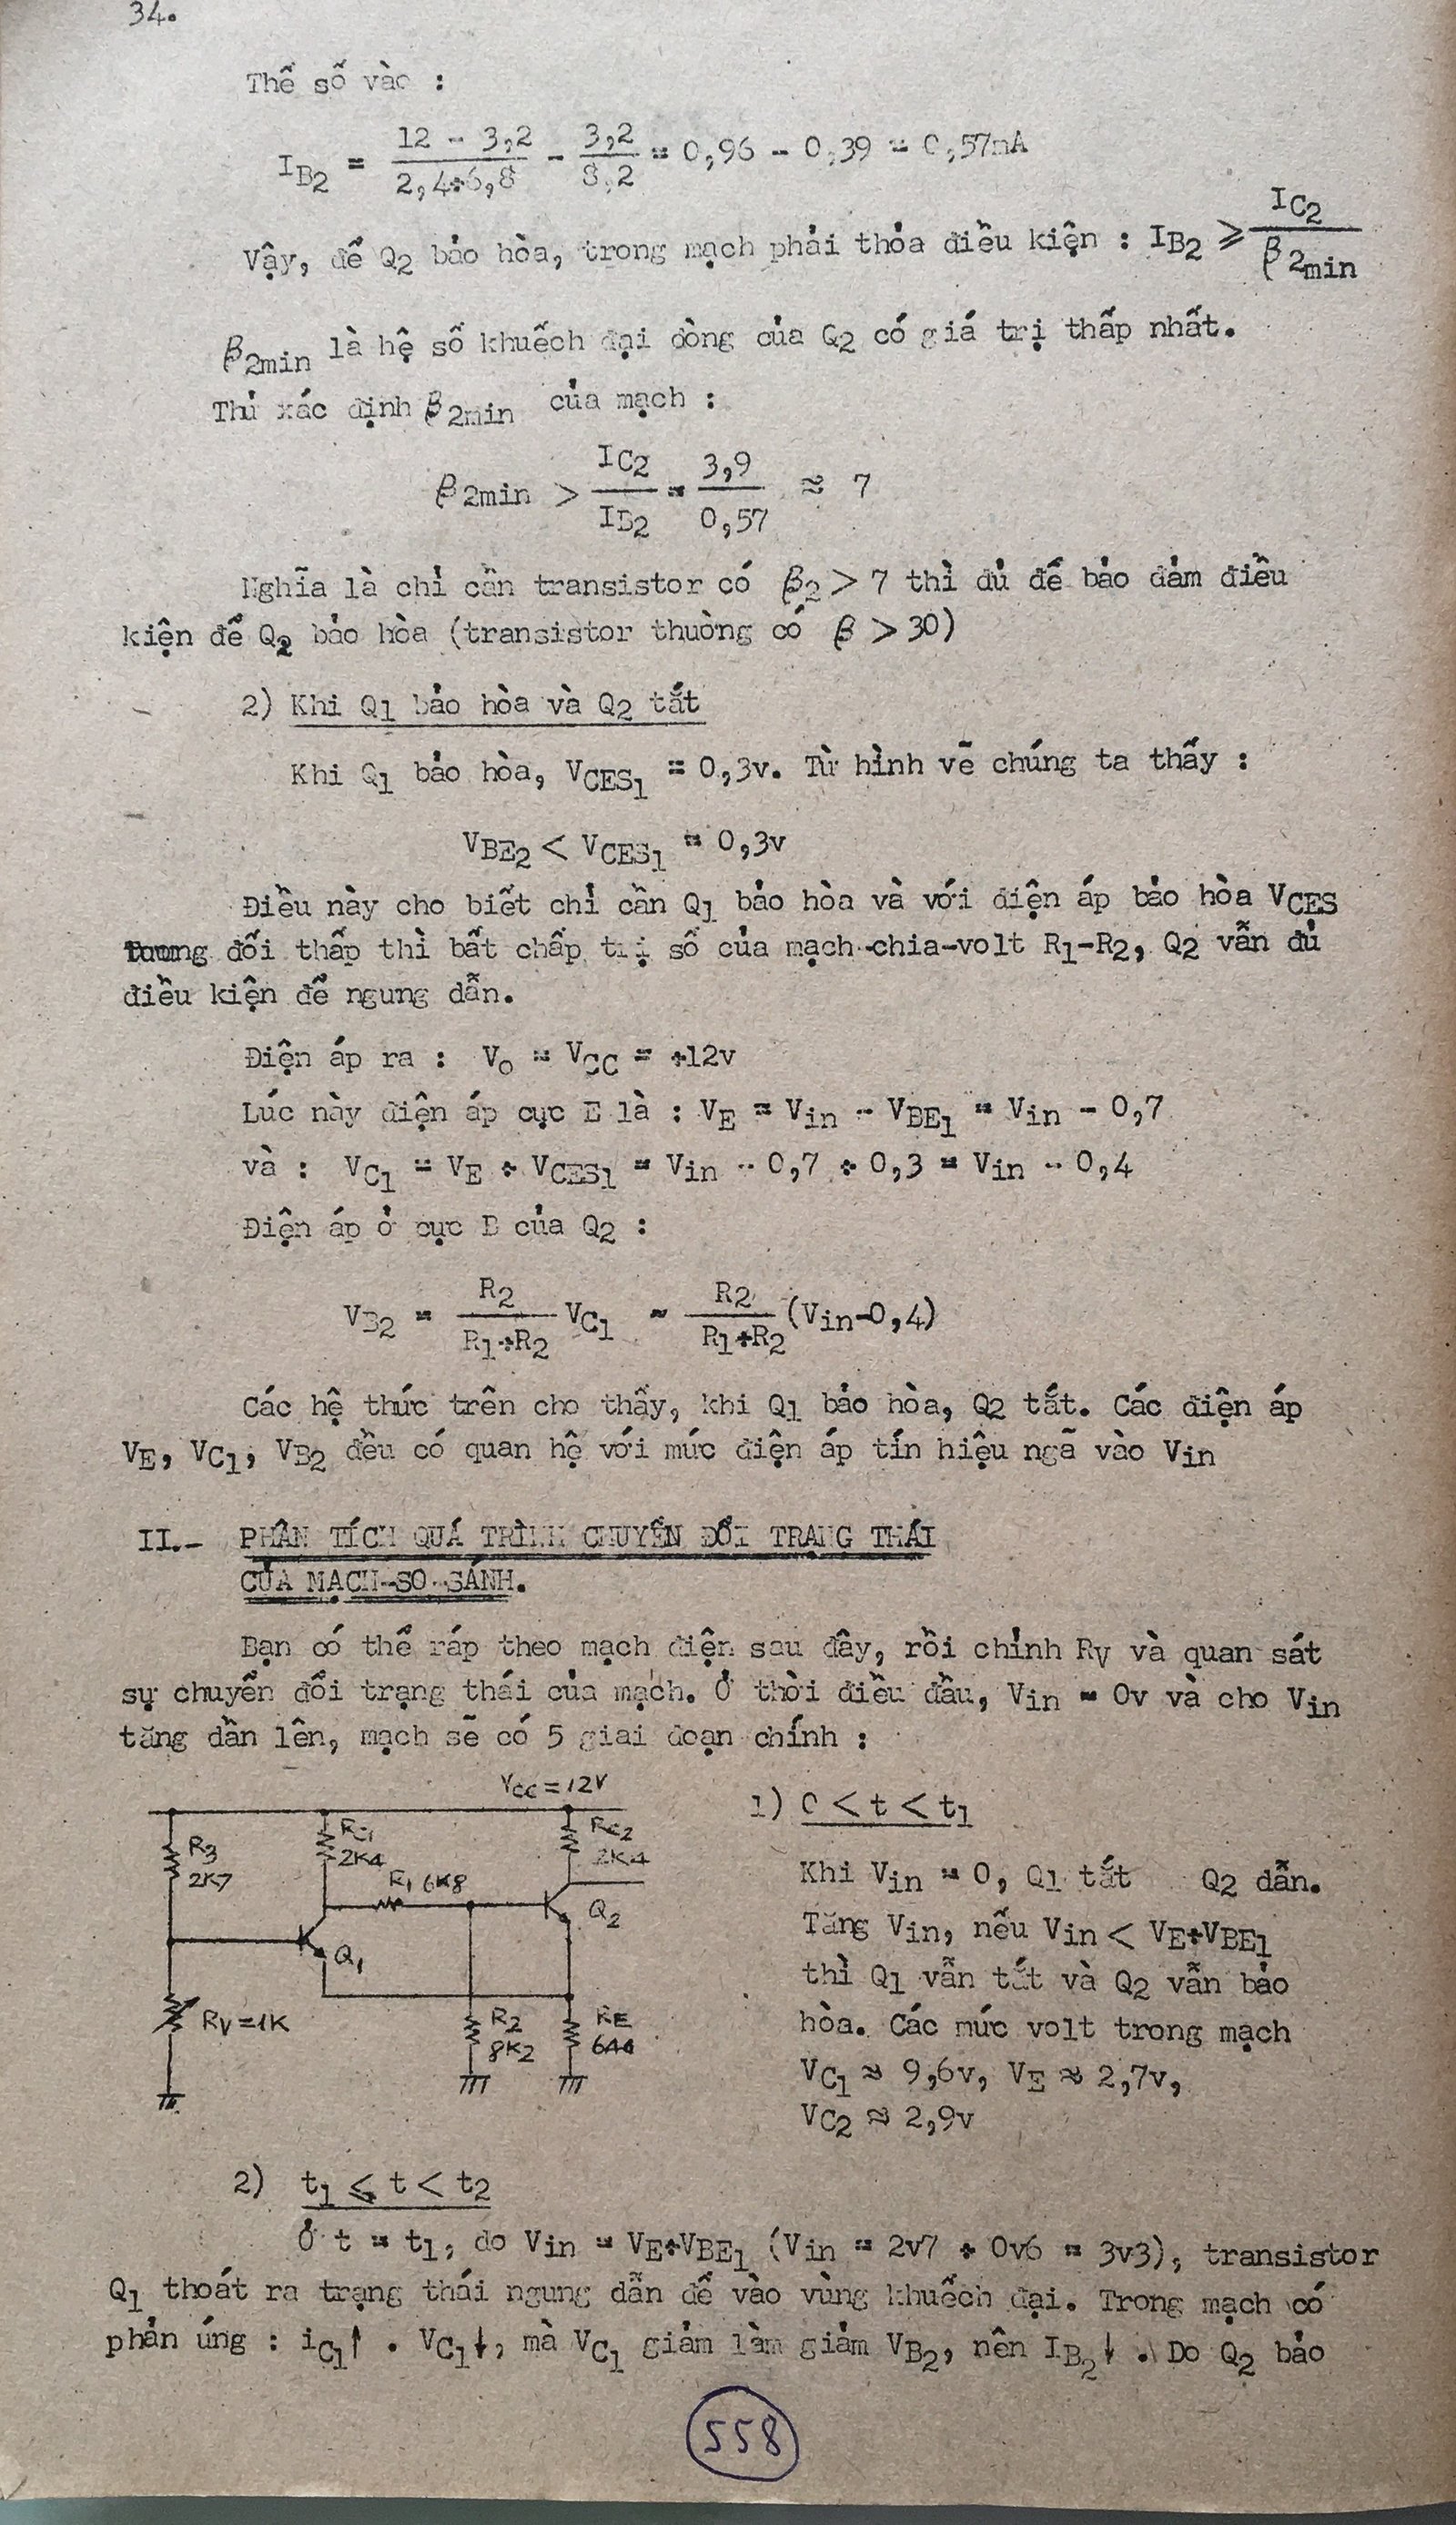 34.
Thế số vào :
I_B2 = (12 - 3,2)/(2,4+6,8) - 3,2/8,2 = 0,96 - 0,39 = 0,57mA
Vậy, để Q2 bảo hòa, trong mạch phải thỏa điều kiện : I_B2 ⩾ I_C2/β2min
β2min là hệ số khuếch đại dòng của Q2 có giá trị thấp nhất.
Thử xác định β2min của mạch :
β2min > I_C2/I_B2 = 3,9/0,57 ≈ 7
Nghĩa là chỉ cần transistor có β2 > 7 thì đủ để bảo đảm điều
kiện để Q2 bảo hòa (transistor thường có β > 30)
2) Khi Q1 bảo hòa và Q2 tắt
Khi Q1 bảo hòa, V_CES1 = 0,3v. Từ hình vẽ chúng ta thấy :
V_BE2 < V_CES1 = 0,3v
Điều này cho biết chỉ cần Q1 bảo hòa và với điện áp bảo hòa V_CES
tương đối thấp thì bất chấp trị số của mạch-chia-volt R1-R2, Q2 vẫn đủ
điều kiện để ngưng dẫn.
Điện áp ra : Vo = V_CC = +12v
Lúc này điện áp cực E là : V_E = Vin - V_BE1 = Vin - 0,7
và : V_C1 = V_E + V_CES1 = Vin - 0,7 + 0,3 = Vin - 0,4
Điện áp ở cực B của Q2 :
V_B2 = R2/(R1+R2) V_C1 = R2/(R1+R2) (Vin-0,4)
Các hệ thức trên cho thấy, khi Q1 bảo hòa, Q2 tắt. Các điện áp
V_E, V_C1, V_B2 đều có quan hệ với mức điện áp tín hiệu ngã vào Vin
II.- PHÂN TÍCH QUÁ TRÌNH CHUYỂN ĐỔI TRẠNG THÁI
CỦA MẠCH-SO-SÁNH.
Bạn có thể ráp theo mạch điện sau đây, rồi chỉnh Rv và quan sát
sự chuyển đổi trạng thái của mạch. Ở thời điều đầu, Vin = 0v và cho Vin
tăng dần lên, mạch sẽ có 5 giai đoạn chính :
Vcc = 12V
R3
2K7
RC1
2K4
R1 6K8
RC2
2K4
Q2
Q1
RV = 1K
R2
8K2
RE
644
1) 0 < t < t1
Khi Vin = 0, Q1 tắt Q2 dẫn.
Tăng Vin, nếu Vin < V_E+V_BE1
thì Q1 vẫn tắt và Q2 vẫn bảo
hòa. Các mức volt trong mạch
V_C1 ≈ 9,6v, V_E ≈ 2,7v,
V_C2 ≈ 2,9v
2) t1 ⩽ t < t2
Ở t = t1, do Vin = V_E+V_BE1 (Vin = 2v7 + 0v6 = 3v3), transistor
Q1 thoát ra trạng thái ngưng dẫn để vào vùng khuếch đại. Trong mạch có
phản ứng : i_C1↑ . V_C1↓, mà V_C1 giảm làm giảm V_B2, nên I_B2↓ . Do Q2 bảo
558